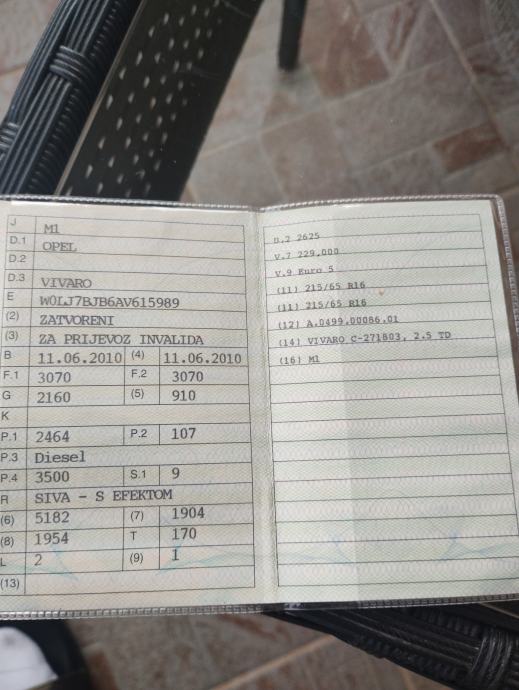 J M1
D.1 OPEL
D.2
D.3 VIVARO
E W0LJ7BJB6AV615989
(2) ZATVORENI
(3) ZA PRIJEVOZ INVALIDA
B 11.06.2010 (4) 11.06.2010
F.1 3070 F.2 3070
G 2160 (5) 910
K
P.1 2464 P.2 107
P.3 Diesel
P.4 3500 S.1 9
R SIVA - S EFEKTOM
(6) 5182 (7) 1904
(8) 1954 T 170
L 2 (9) 1
(13)
D.2 2625
V.7 229,000
V.9 Euro 5
(11) 215/65 R16
(11) 215/65 R16
(12) A.0499.00086.01
(14) VIVARO C-271803, 2.5 TD
(16) M1